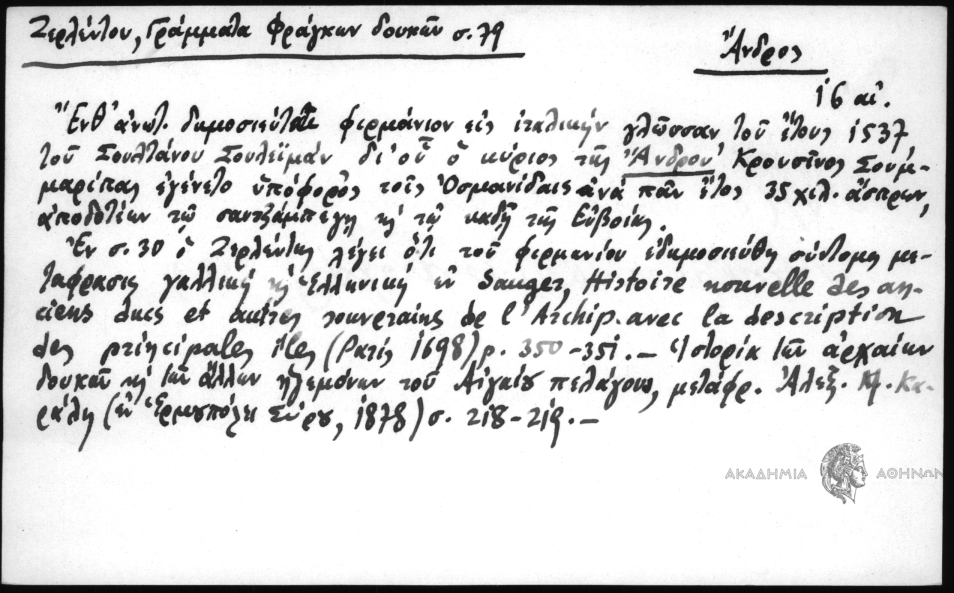 Ζερλέντου, Γράμματα Φράγκων δουκῶν σ. 79
Ἄνδρος
16 αἰ.
"Ενθ' ἀνωτ. δημοσιεύεται φερμάνιον εἰς ἰταλικὴν γλῶσσαν τοῦ ἔτους 1537,
τοῦ Σουλτάνου Σουλεϊμάν δι' οὗ ὁ κύριος τῆς Ἄνδρου Κρουσῖνος Σουμ-
μαρίπας ἐγένετο ὑπόφορος τοῖς Ὀσμανίδαις ἀνὰ πᾶν ἔτος 35 χιλ. ἄσπρων,
ἀποδοτέων τῷ σαντζάμπεγη κ τῷ καδῇ τῆς Εὐβοίας.
Ἐν σ. 30 ὁ Ζερλέντης λέγει ὅτι τοῦ φερμανίου ἐδημοσιεύθη σύντομη με-
τάφρασις γαλλική κ Ἑλληνική ἐν Sauger, Histoire nouvelle des an-
ciens ducs et autres souverains de l'Archip. avec la description
des principales îles (Paris 1698) p. 350-351. — Ἱστορία τῶν ἀρχαίων
δουκῶν κ τῶν ἄλλων ἡγεμόνων τοῦ Αἰγαίου πελάγους, μετάφρ. Ἀλεξ. Μ. Κα-
ράλη (ἐν Ἑρμουπόλει Σύρου, 1878) σ. 218-219. —
ΑΚΑΔΗΜΙΑ ΑΘΗΝΩΝ